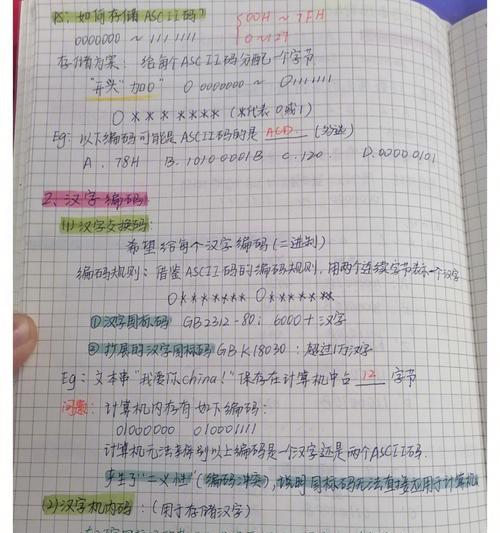 如何存储ASCII码?
0000000 ~ 1111111
{00H ~ 7FH
0 ~ 127
存储方案: 给每个ASCII码分配一个字节
"开头"加0" 0 0000000 ~ 01111111
0 * * * * * * * (*代表0或1)
Eg: 以下编码可能是ASCII码的是 ACD (多选)
A. 78H B. 10100001B C. 120 D. 00000101
2、汉字编码
(1)汉字交换码:
希望给每个汉字编码(二进制)
编码规则: 借鉴ASCII码的编码规则, 用两个连续字节表示一个汉字
0******* 0*******
①汉字国标码 GB2312-80: 6000+汉字
②扩展的汉字国标码 GBK18030: 超过1万汉字
Eg: 文本串"我爱你china!"保存在计算机中占 12 字节
问题: 计算机内存有如下编码:
01000000 01110001
计算机无法辨别以上编码是一个汉字还是两个ASCII码.
产生了"二义性"(编码冲突), 说明国标码无法直接应用于计算机
(2)汉字机内码: (用于存储汉字)